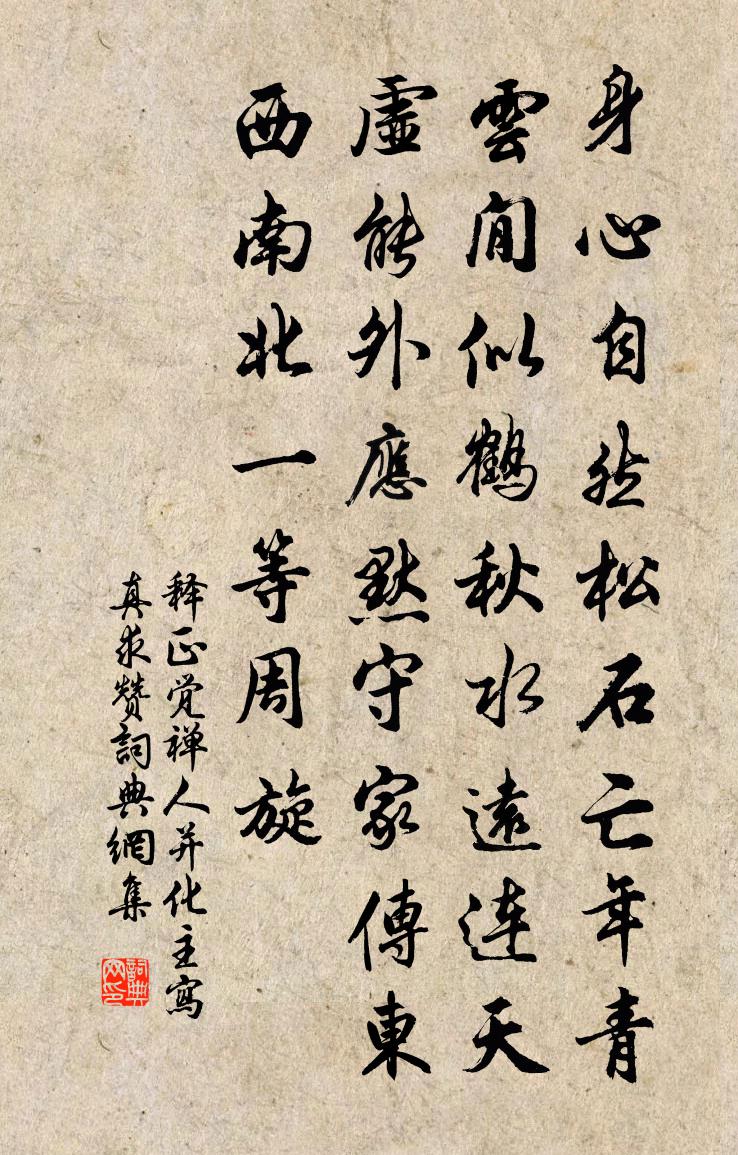 身心自然松石亡年青
雲閒似鶴秋水遠連天
虛能外應默守家傳東
西南北一等周旋
释正觉禅人并化主寫
真求赞詞典網集
詞典网印